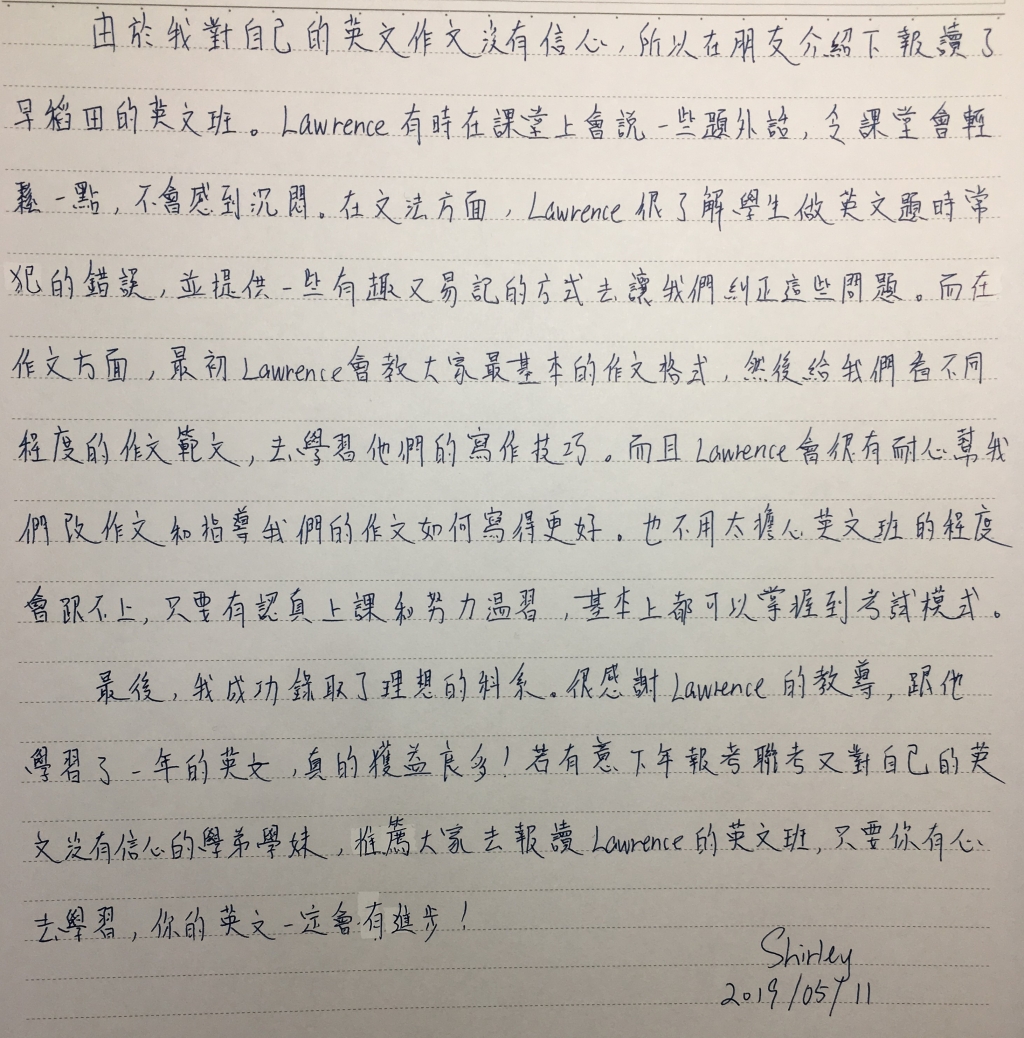 由於我對自己的英文作文沒有信心，所以在朋友介紹下報讀了
早稻田的英文班。Lawrence有時在課堂上會說一些題外話，令課堂會輕
鬆一點，不會感到沉悶。在文法方面，Lawrence很了解學生做英文題時常
犯的錯誤，並提供一些有趣又易記的方式去讓我們糾正這些問題。而在
作文方面，最初Lawrence會教大家最基本的作文格式，然後給我們看不同
程度的作文範文，去學習他們的寫作技巧。而且Lawrence會很有耐心幫我
們改作文和指導我們的作文如何寫得更好。也不用太擔心英文班的程度
會跟不上，只要有認真上課和努力溫習，基本上都可以掌握到考試模式。
最後，我成功錄取了理想的科系。很感謝Lawrence的教導，跟他
學習了一年的英文，真的獲益良多！若有意下年報考聯考又對自己的英
文沒有信心的學弟學妹，推薦大家去報讀Lawrence的英文班，只要你有心
去學習，你的英文一定會有進步！
Shirley
2019/05/11